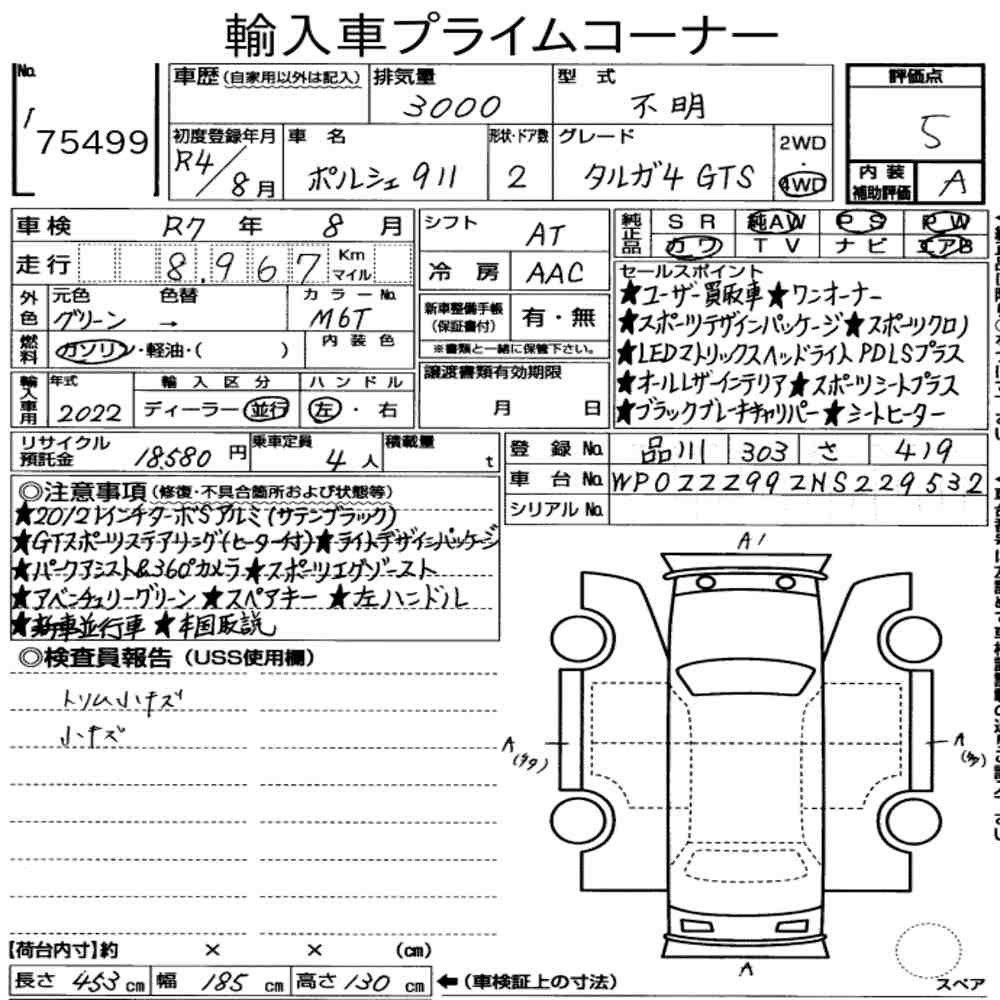 輸入車プライムコーナー
No. 75499
車歴(自家用以外は記入) 排気量 3000 型式 不明
初度登録年月 R4/8月 車名 ポルシェ911 形状・ドア数 2 グレード タルガ4 GTS 2WD・4WD
評価点 5
内装補助評価 A
車検 R7年8月
走行 8,967 Km マイル
外色 元色 グリーン 色替 → カラーNo. M6T
燃料 ガソリン・軽油・( ) 内装色
輸入車用 年式 2022 輸入区分 ディーラー・並行 ハンドル 左・右
シフト AT
冷房 AAC
新車整備手帳(保証書付) 有・無
※書類と一緒に保管下さい。
譲渡書類有効期限
月 日
純正品 SR 純AW PS PW
カワ TV ナビ エアB
セールスポイント
★ユーザー買取車★ワンオーナー
★スポーツデザインパッケージ★スポーツクロノ
★LEDマトリックスヘッドライトPDLSプラス
★オールレザーインテリア★スポーツシートプラス
★ブラックブレーキキャリパー★シートヒーター
リサイクル預託金 18580円 乗車定員 4人 積載量 t
登録No. 品川 303 さ 419
車台No. WP0ZZZ99ZNS229532
シリアルNo.
◎注意事項(修復・不具合箇所および状態等)
★20/21インチターボSアルミ(サテンブラック)
★GTスポーツステアリング(ヒーター付)★ライトデザインパッケージ
★パークアシスト&360°カメラ★スポーツエグゾースト
★アベンチュリーグリーン★スペアキー ★左ハンドル
★新車並行車★本国取説
◎検査員報告(USS使用欄)
トリム小キズ
小キズ
A1
A
A
A
【荷台内寸】約 × × (cm)
長さ 453 cm 幅 185 cm 高さ 130 cm ←(車検証上の寸法)
スペア